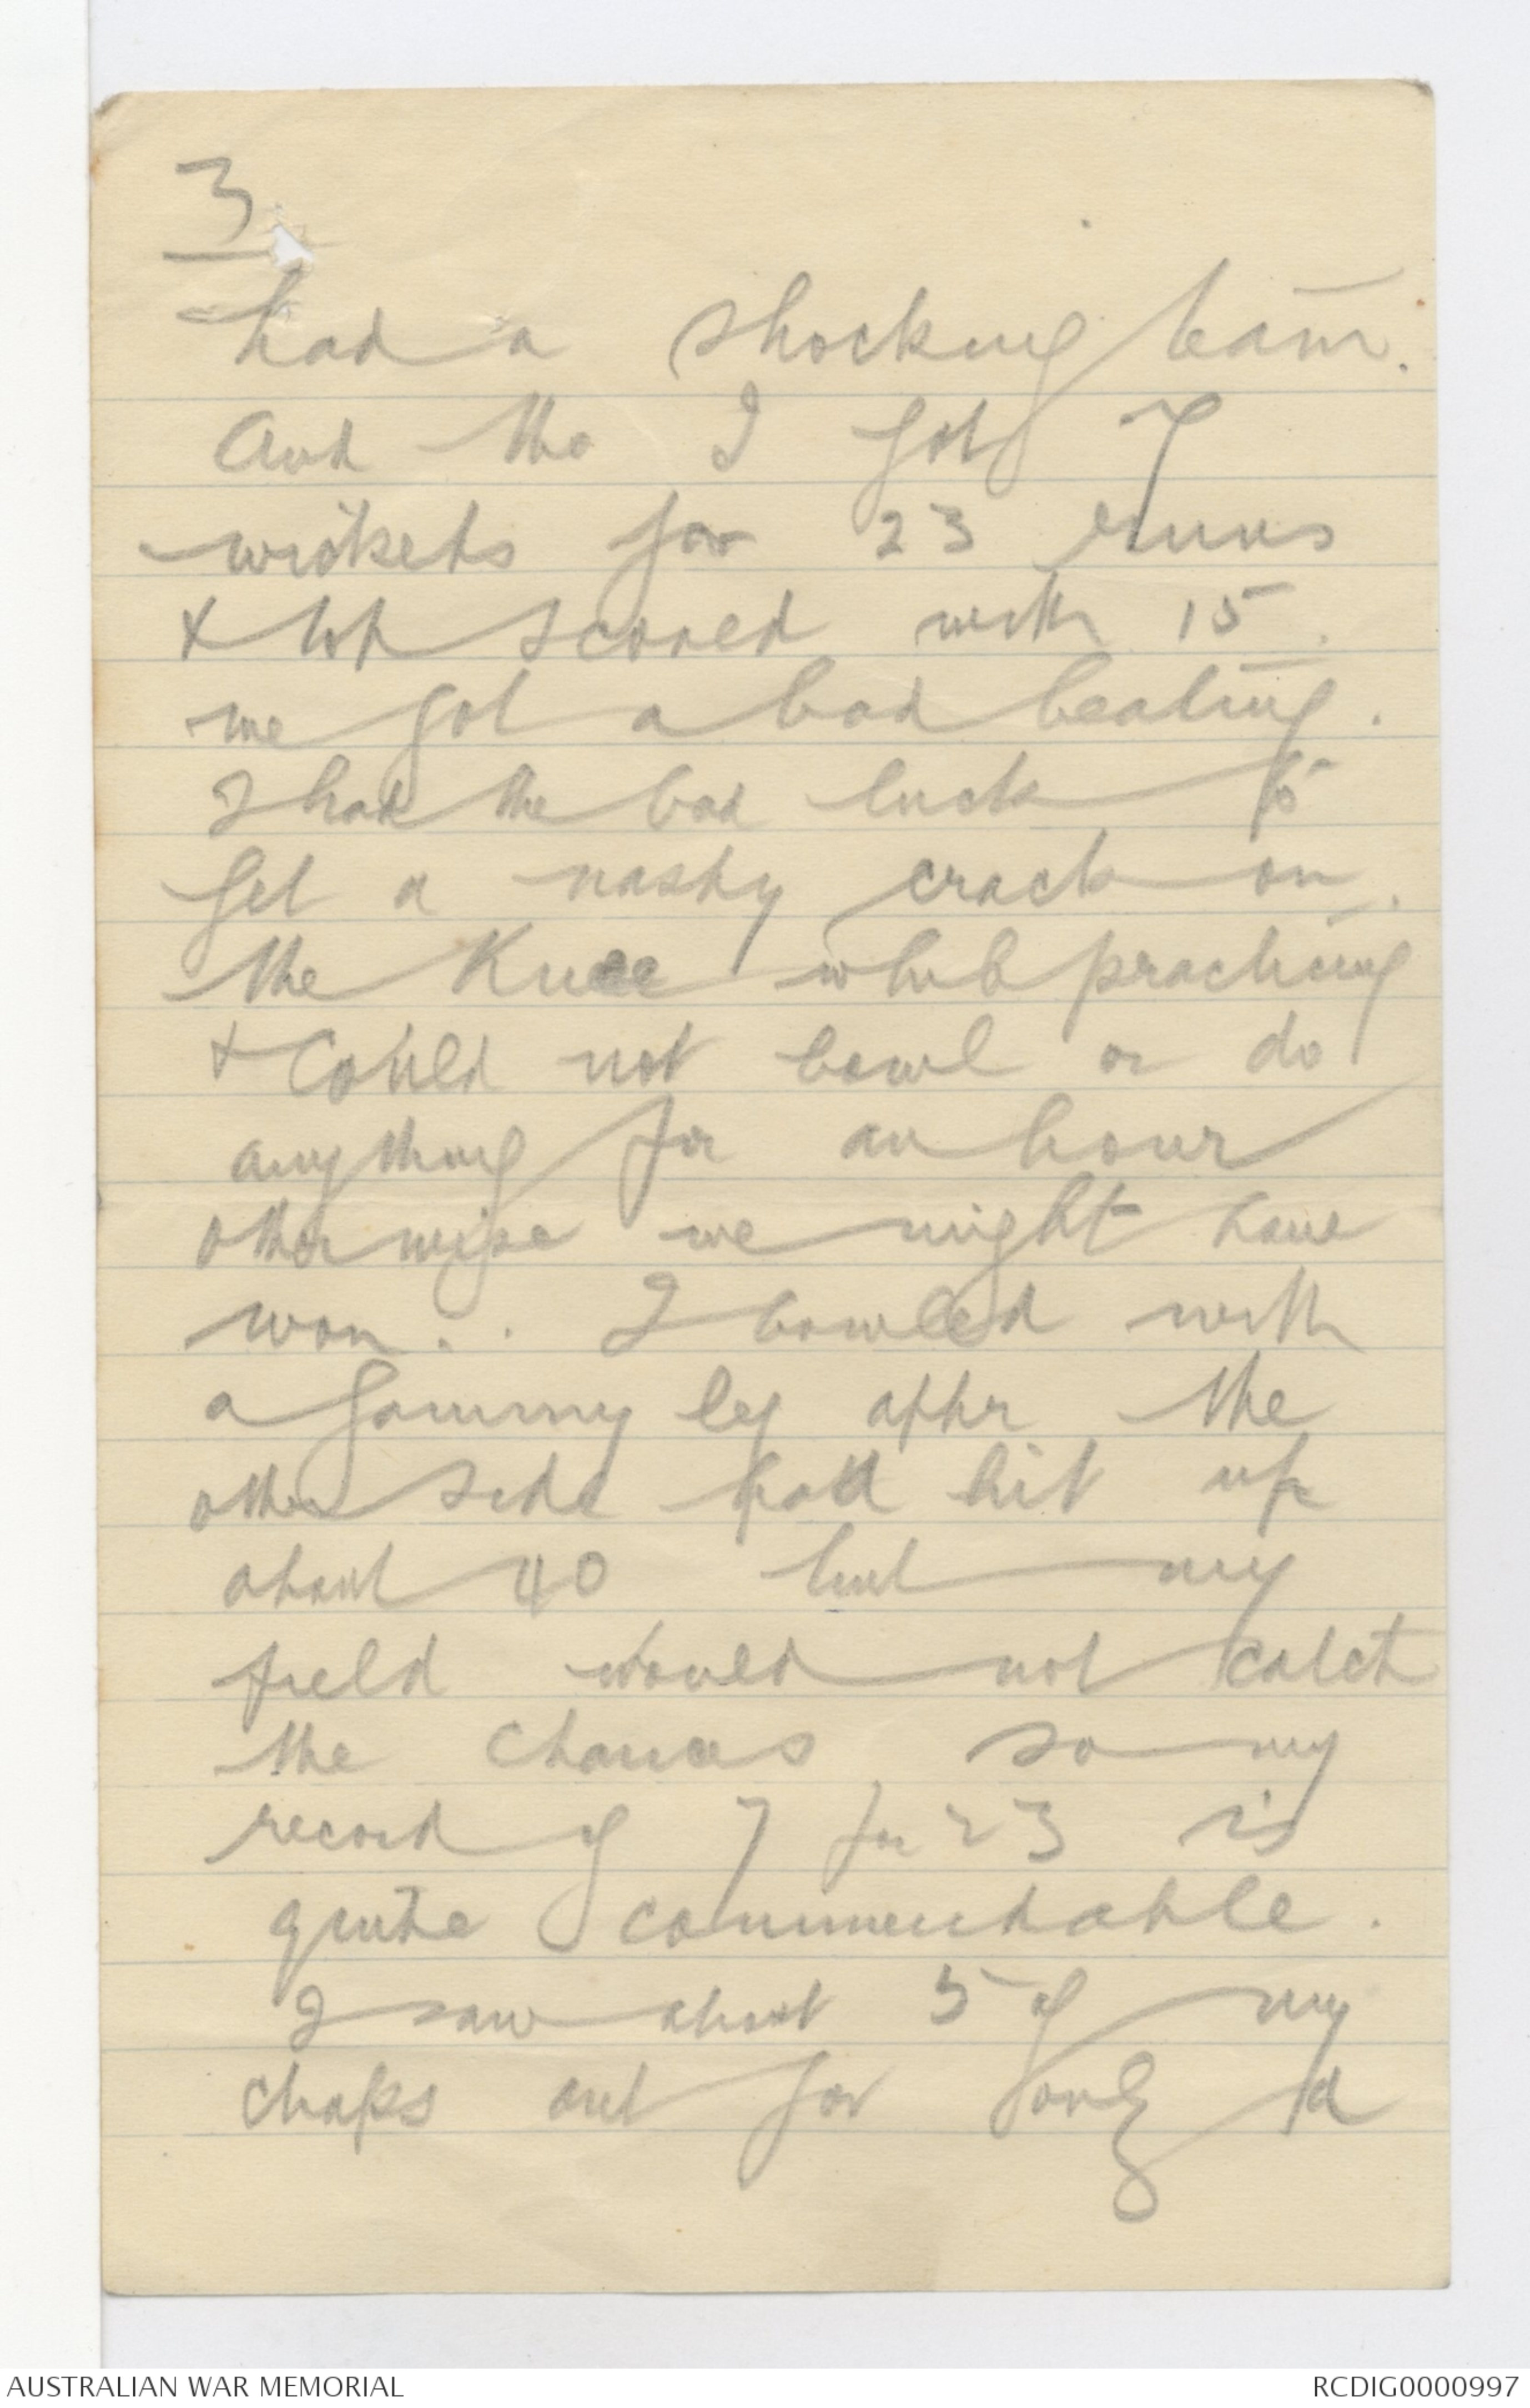 3
had a shocking team.
And tho I got 7
wickets for 23 runs
& top scored with 15.
we got a bad beating.
I had the bad luck to
get a nasty crack on.
the Knee whilst practicing
& could not bowl or do
anything for an hour
otherwise we might have
won. . I bowled with
a gammy leg after the
other side had hit up
about 40 but my
field would not catch
the chances so my
record of 7 for 23 is
quite commendable.
I saw about 5 of my
chaps out for only a
AUSTRALIAN WAR MEMORIAL
RCDIG0000997